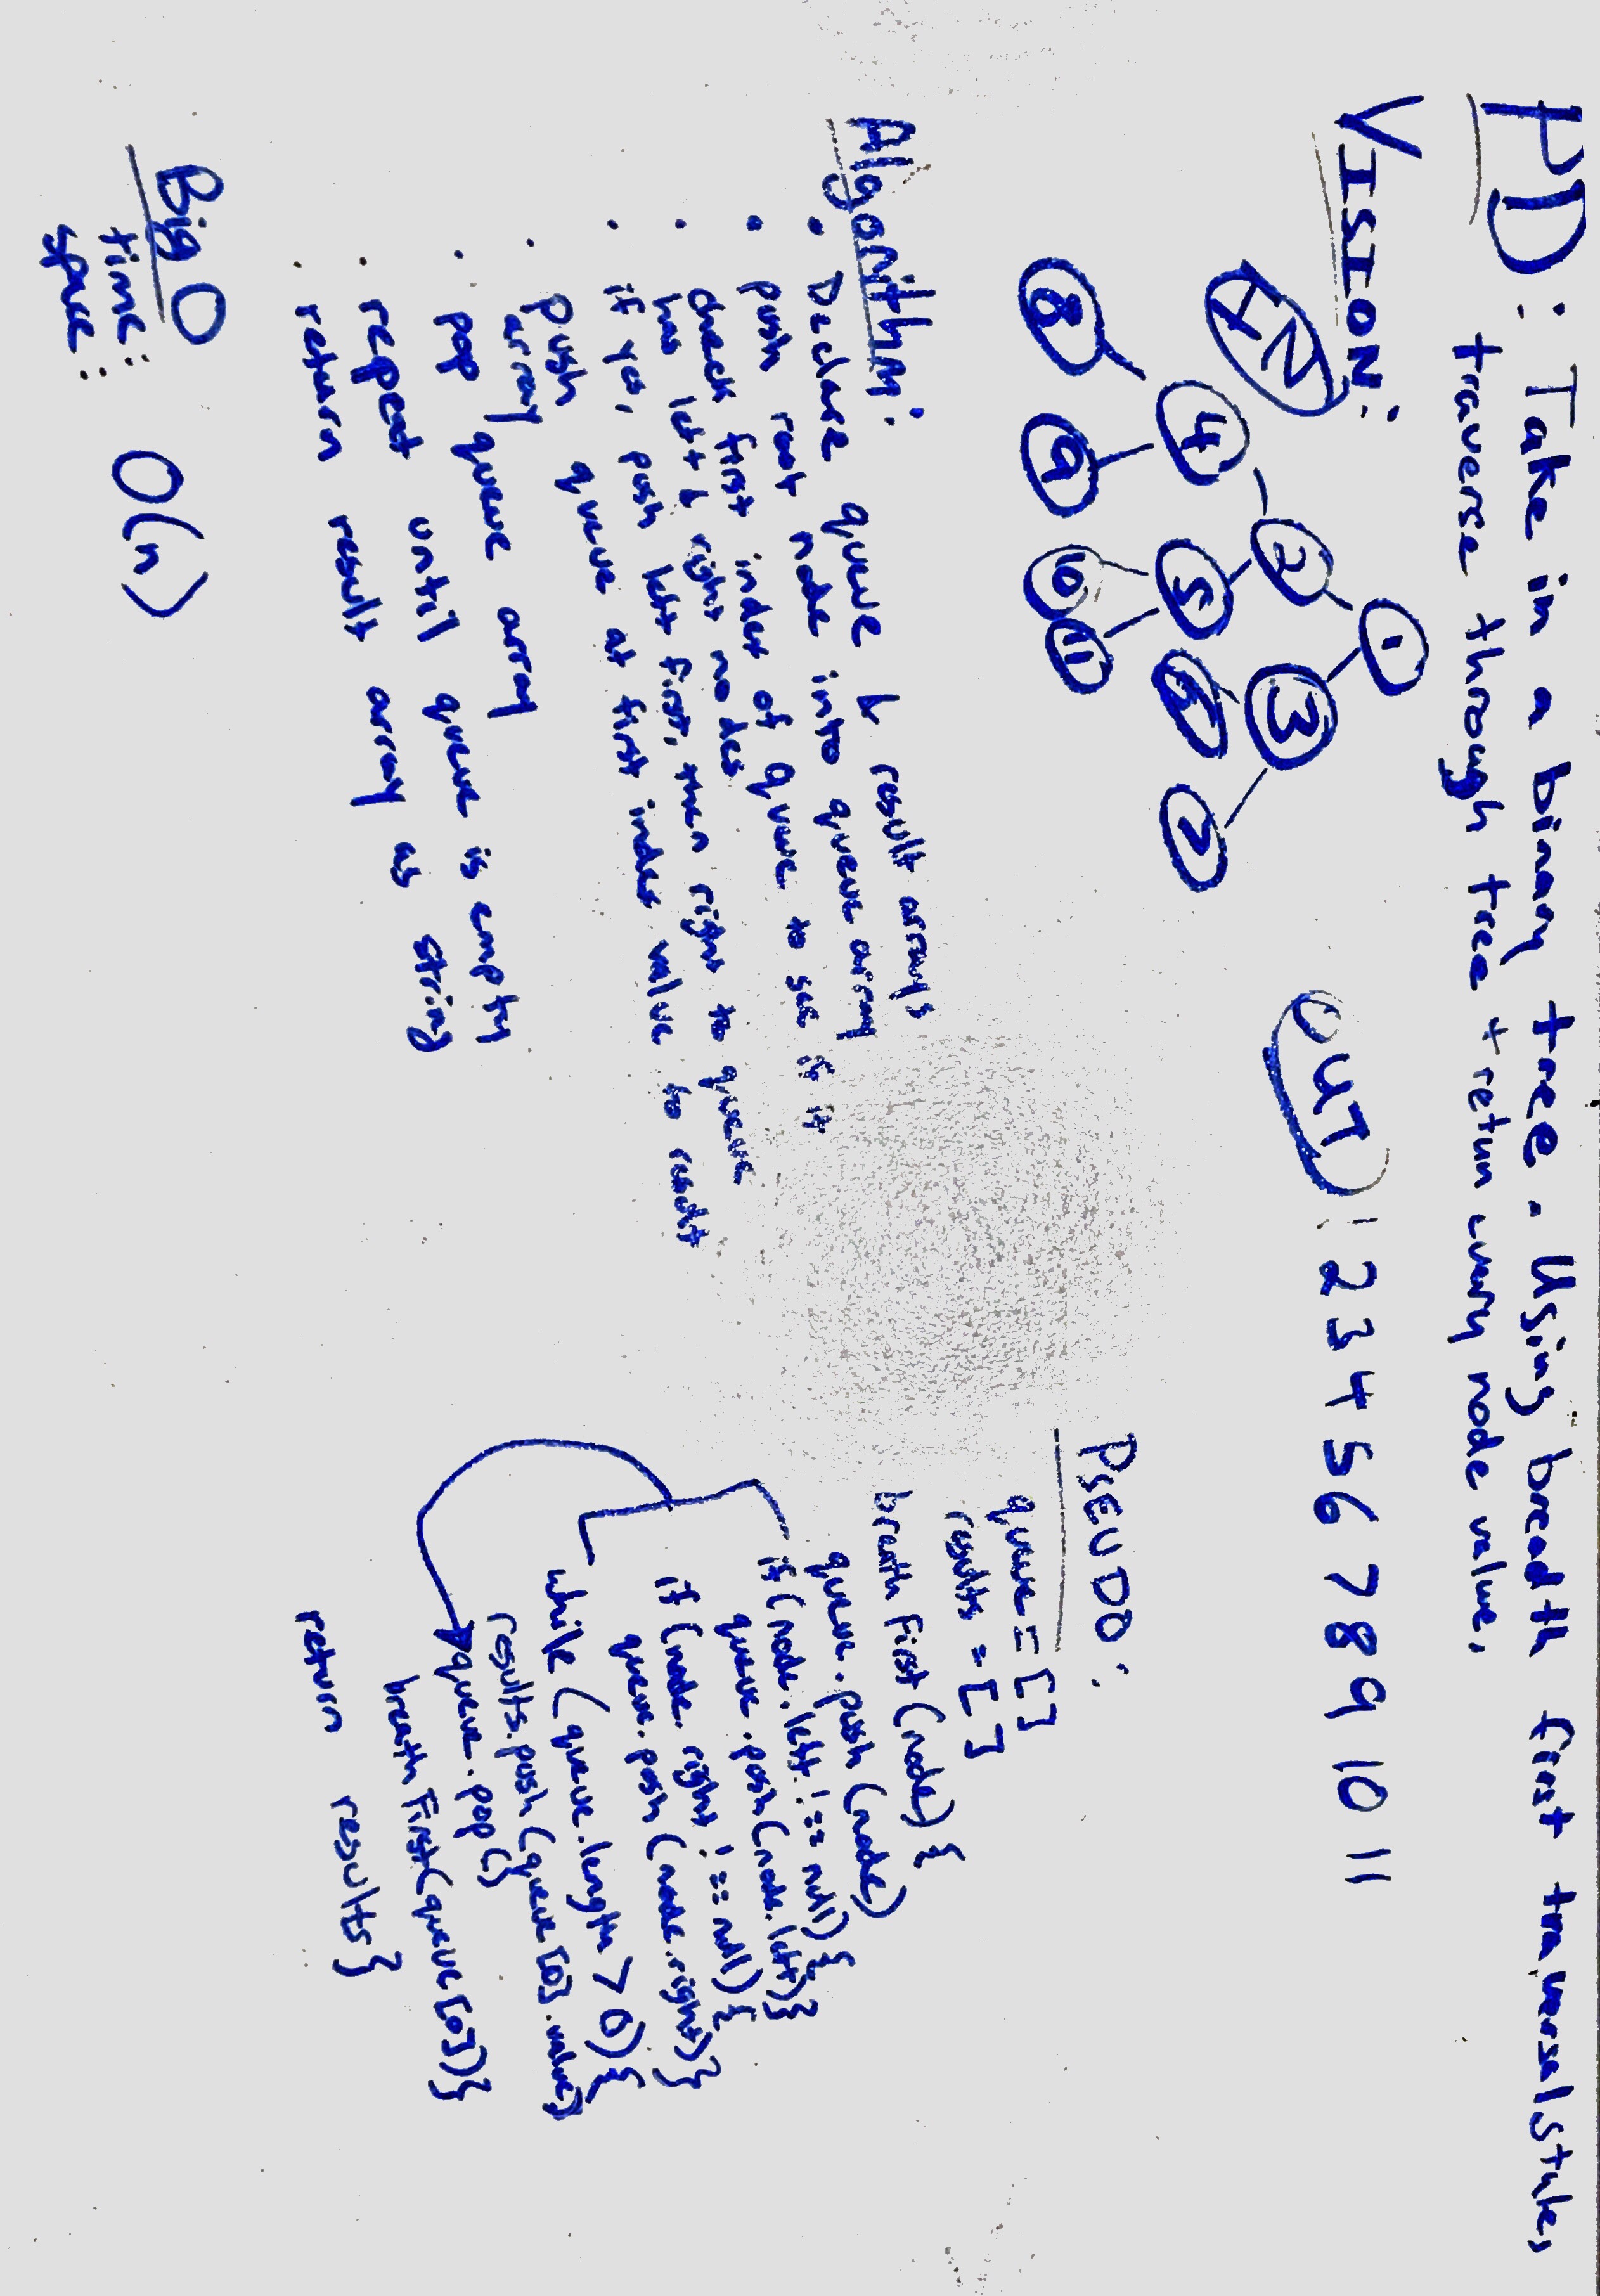 PD: Take in a binary tree. Using breadth first traversal style,
traverse through tree + retun every node value.
VISION:
IN
1
2 3
4 5 6 7
8 9 10 11
OUT 1 2 3 4 5 6 7 8 9 10 11
Algorithm:
• Declare queue & result arrays
• push root node into queue array
• check first index of queue to see if it
has left & right nodes
• if yes, push left first, then right to queue
• push queue at first index value to result
array
• pop queue array
• repeat until queue is empty
• return result array as string
PSEUDO:
queue = []
results = []
breath First (node) {
queue.push (node)
if (node.left !== null) {
queue.push (node.left)}
if (node.right !== null) {
queue.push (node.right)}
while (queue.length > 0) {
results.push (queue [0].value)
queue.pop()
breath First (queue [0])}
return results}
Big O
time: O(n)
space: